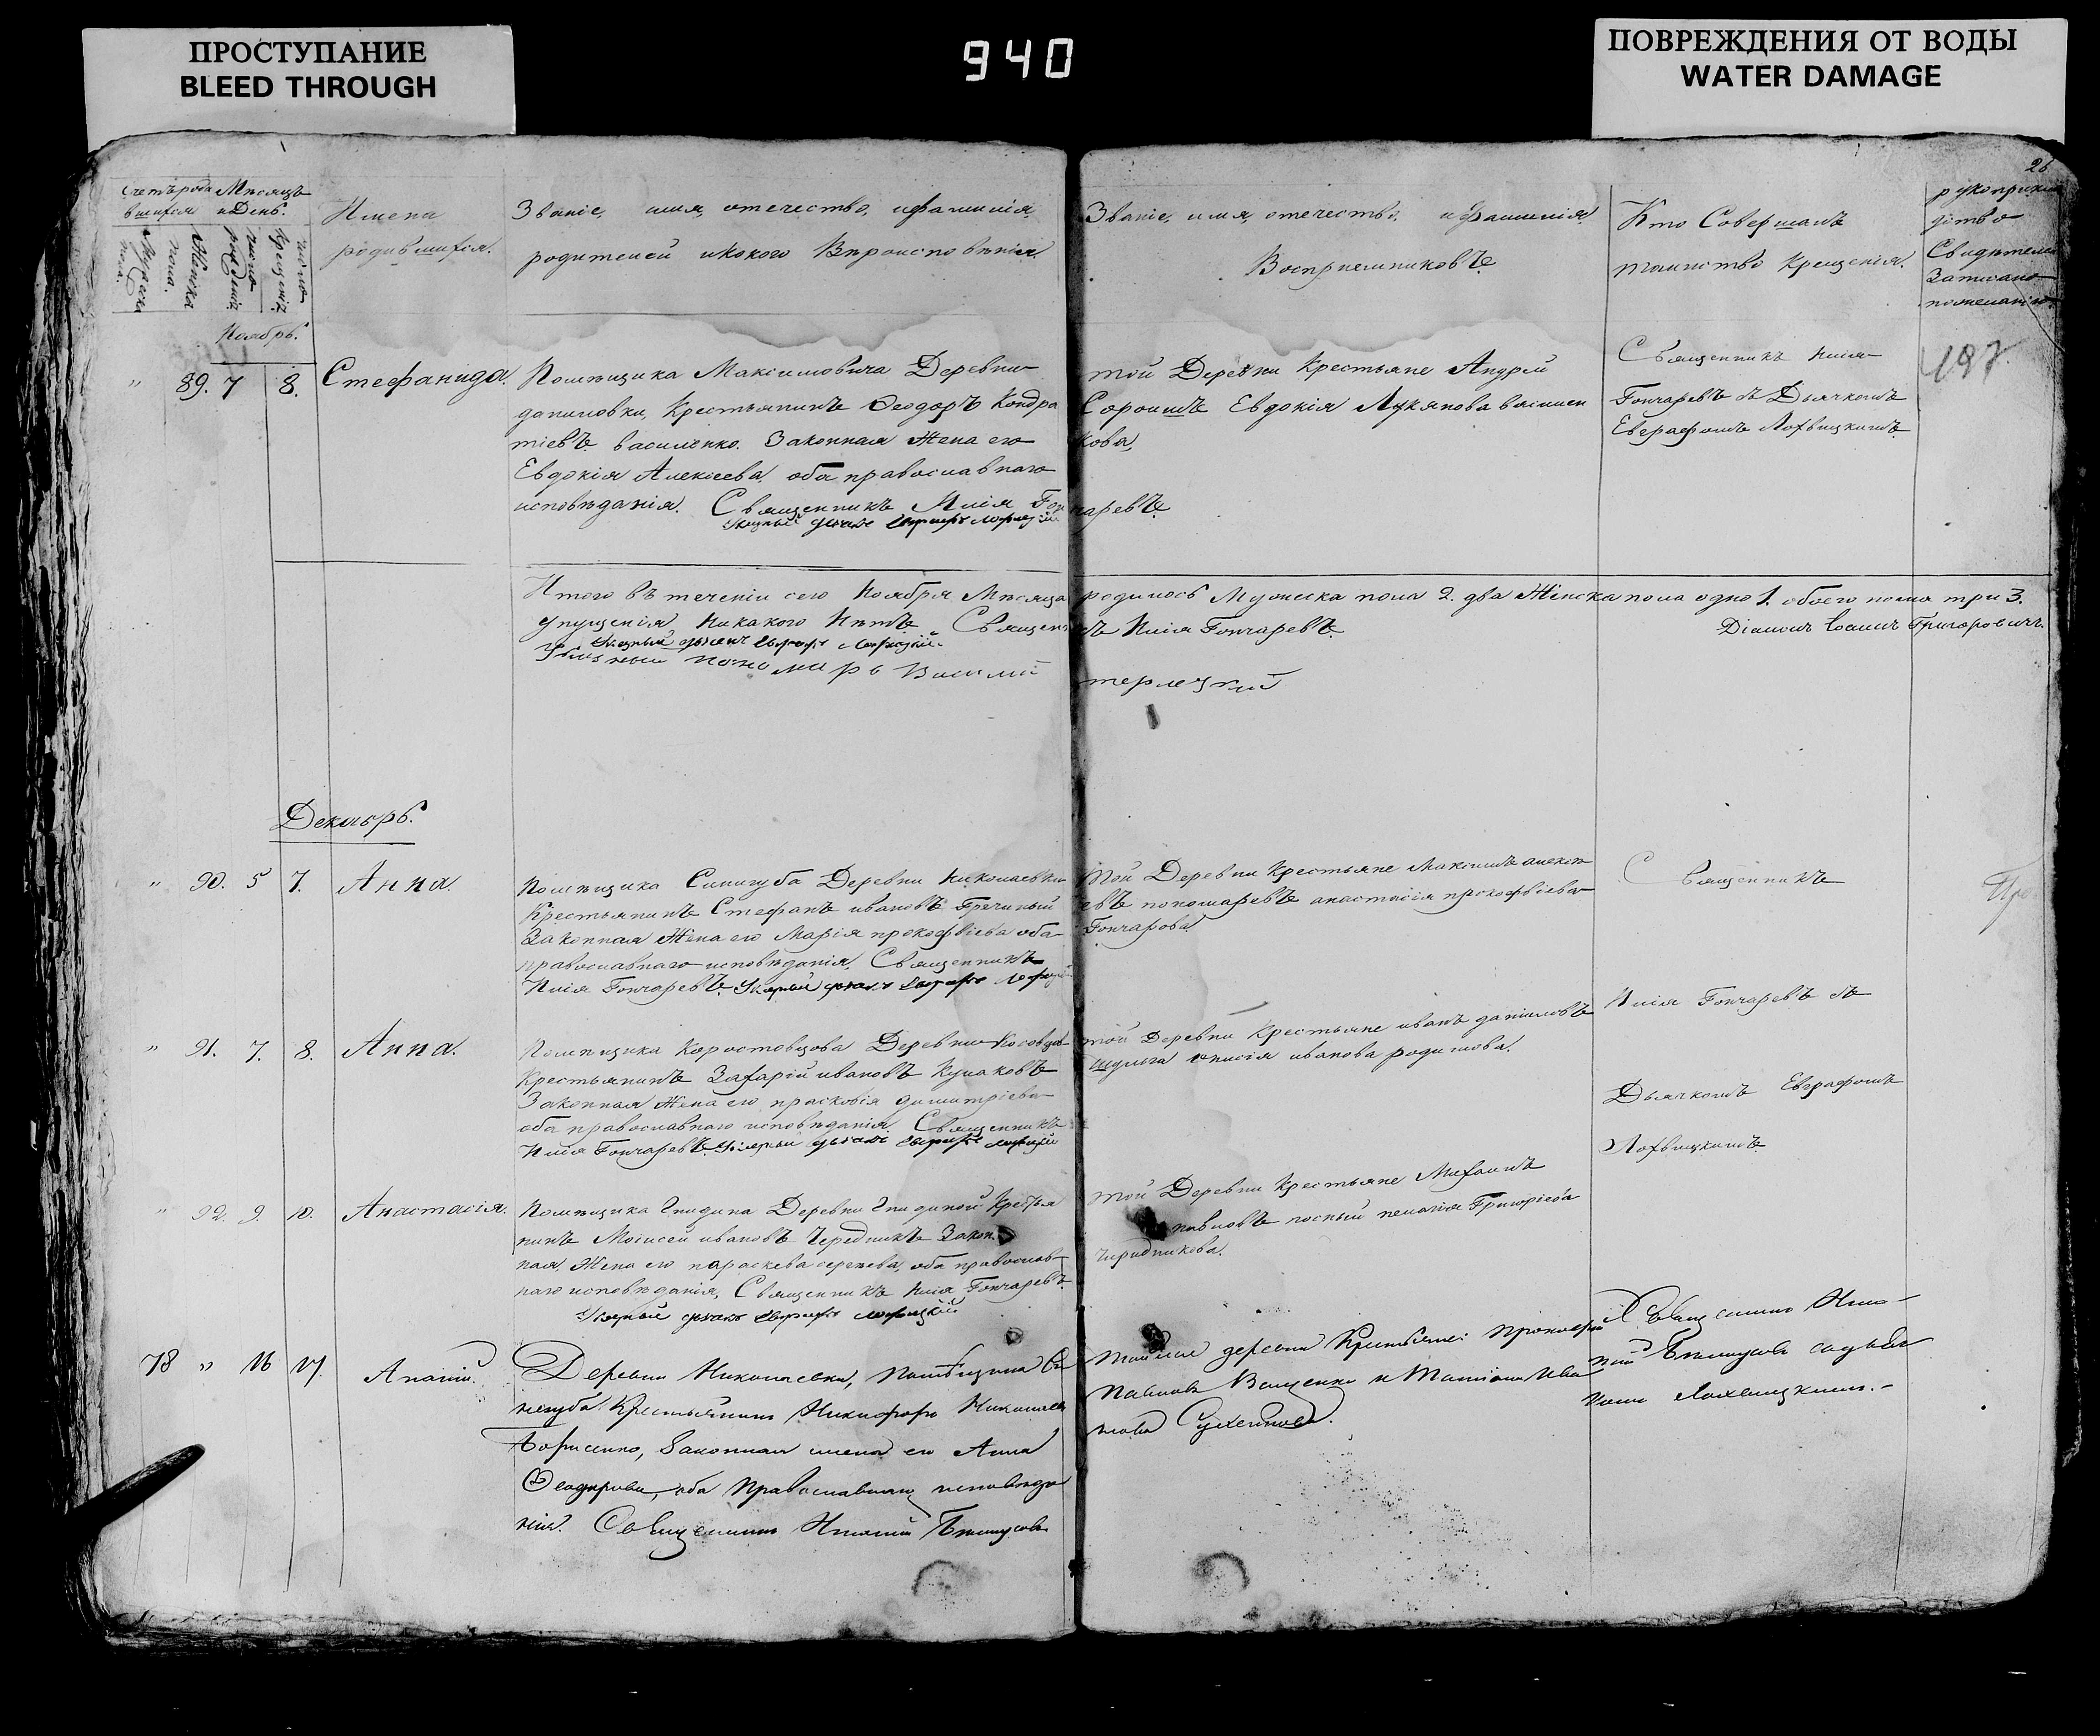 ПРОСТУПАНИЕ
BLEED THROUGH
940
ПОВРЕЖДЕНИЯ ОТ ВОДЫ
WATER DAMAGE
26
Счетъ рода Мѣсяцъ
вшихся и День.
Мужска пола.
Женска пола.
число рожденія
число крещенія
Имена
родившихся.
Званіе, имя, отечество, и фамилія
родителей и какого Вѣроисповѣнія
Званіе, имя, отечество, и фамилія
Воспріемниковъ
Кто Совершалъ
таинство крещенія.
рукоприкла
дство
Свидетелей
Записано
по желанію
Ноябрь.
" 89. 7 8. Стефанида.
Помѣщика Максимовича Деревни
даниловки, Крестьянинъ Феодоръ Кондра
тіевъ василенко. Законная Жена его
Евдокія Алексеева, оба православнаго
исповѣданія. Священникъ Илія Гончаревъ
той Деревни Крестьяне Андрей
Сорошъ Евдокія Лукянова василен
кова,
Священникъ Илія
Гончаревъ съ Дьячкомъ
Евграфомъ Лохвицкимъ
197.
Итого въ теченіи сего Ноября Мѣсяца родилось Мужеска пола 2. два Женска пола одно 1. обоего пола три 3.
упущенія никакого Нѣтъ Священникъ Илія Гончаревъ
Діаконъ Іоаннъ Григоровичъ
пономарь Василій терлецкий
Декабрь.
" 90. 5 7. Анна.
Помѣщика Синигуба Деревни Николаевки
Крестьянинъ Стефанъ ивановъ Гречиный
Законная Жена его Марія прокофіева оба
православнаго исповѣданія, Священникъ
Илія Гончаревъ
той Деревни Крестьяне Максимъ алексе
евъ понашаревъ анастасія прокофіева
Гончарова
Священникъ
" 91. 7. 8. Анна.
Помѣщика Коростовцова Деревни
Крестьянинъ Захарій ивановъ Кулаковъ
Законная Жена его прасковія димитріева
оба православнаго исповѣданія Священникъ
Илія Гончаревъ
той Деревни Крестьяне иванъ даниловъ
шулга анисія иванова родимова.
Илія Гончаревъ съ
Дьячкомъ Евграфомъ
Лохвицкимъ
" 92. 9. 10. Анастасія.
Помѣщика Гнидина Деревни Гнидиной Крестья
нинъ Моисей ивановъ Чередникъ Закон
ная Жена его параскева сергѣева, оба православ
наго исповѣданія, Священникъ Илія Гончаревъ
той Деревни Крестьяне Михаилъ
павловъ посный пелагія Григоріева
чиредникова.
78 " 16 17. Ананій.
Деревни Николаевки, Помѣщика Си
негуба Крестьянинъ Никифоръ Николаевъ
Борисенко, Законная жена его Анна
Феодорова, оба Православнаго исповѣда
нія. Священникъ
деревни Крестьяне Прокофій
Павловъ Ващенко и Татіана Ива
нова
Священникъ
Лохвицкимъ.